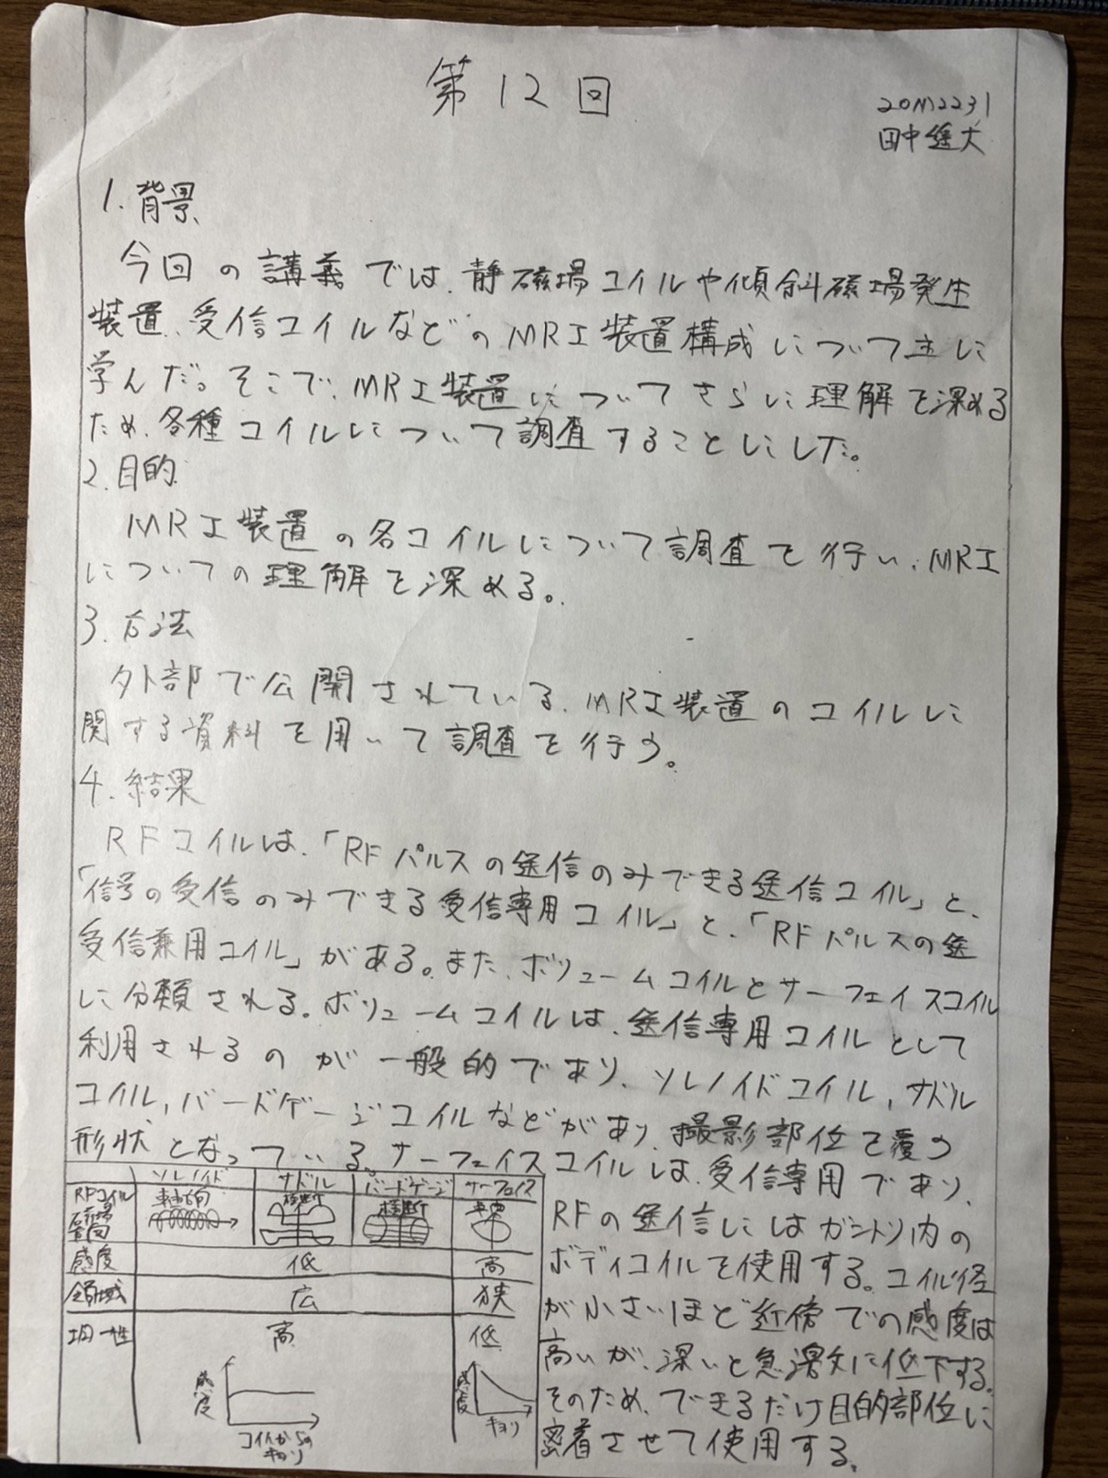 第12回
20M2231
田中雄大
1.背景
今回の講義では、静磁場コイルや傾斜磁場発生
装置、受信コイルなどのMRI装置構成について主に
学んだ。そこで、MRI装置についてさらに理解を深める
ため、各種コイルについて調査することにした。
2.目的
MRI装置の各コイルについて調査を行い、MRI
についての理解を深める。
3.方法
外部で公開されている、MRI装置のコイルに
関する資料を用いて調査を行う。
4.結果
RFコイルは、「RFパルスの送信のみできる送信コイル」と、
「信号の受信のみできる受信専用コイル」と、「RFパルスの送
受信兼用コイル」がある。また、ボリュームコイルとサーフェイスコイル
に分類される。ボリュームコイルは、送信専用コイルとして
利用されるのが一般的であり、ソレノイドコイル,サドル
コイル,バードゲージコイルなどがあり、撮影部位を覆う
形状となっている。サーフェイスコイルは、受信専用であり、
RFの送信にはガントリ内の
ボディコイルを使用する。コイル径
が小さいほど近傍での感度は
高いが、深いと急激に低下する。
そのため、できるだけ目的部位に
密着させて使用する。
ソレノイド サドル バードゲージ サーフェイス
RFコイル
磁場
方向
軸方向 横断 横断 垂直
感度 低 高
領域 広 狭
均一性 高 低
感度
コイルからの
キョリ
感度
キョリ